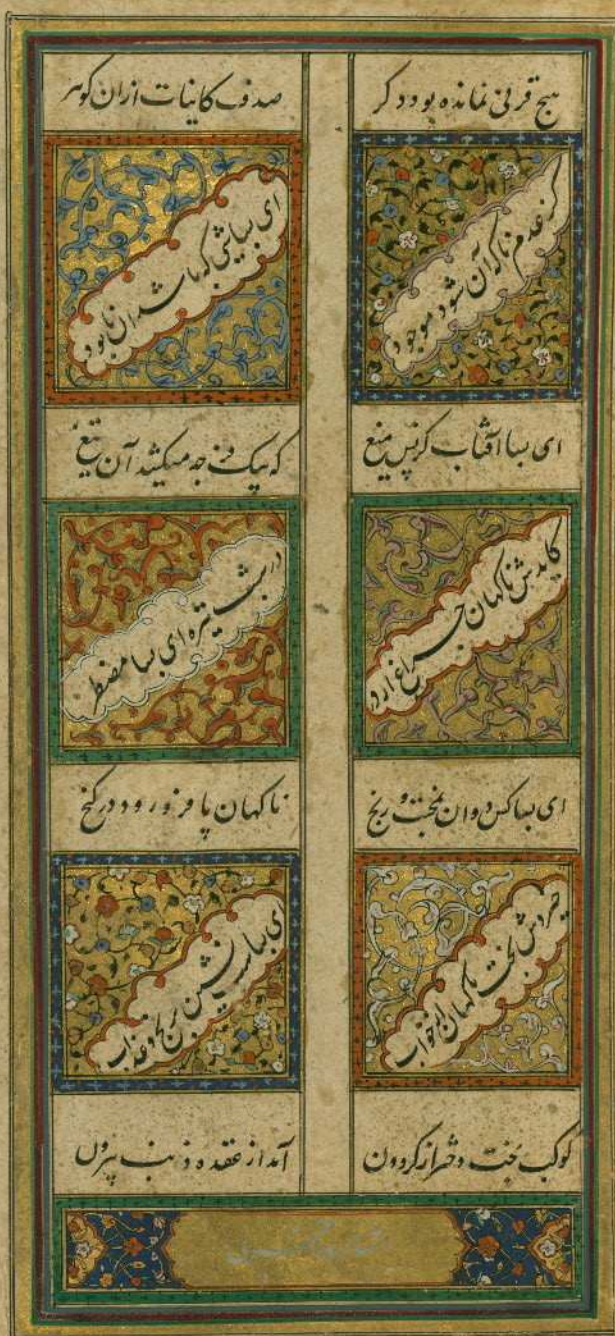 هیچ قرنی نمانده بود دگر
صدف کاینات ازان گوهر
کز عدم ناگه آن شود موجود
ای بسا شی که باشد آن نابود
ای بسا آفتاب کز پس میغ
که بیک جذبه میکشد آن تیغ
کایدش ناگهان چراغ از در
در شب تیره ای بسا مضطر
ای بسا کس دوان بمحنت و رنج
ناگهان پا فرو رود در گنج
بخت ناگهان از خواب
ای بسا شب نشین برنج و عذاب
کوکب بخت دختر از گردون
آمد از عقده ذنب بیرون